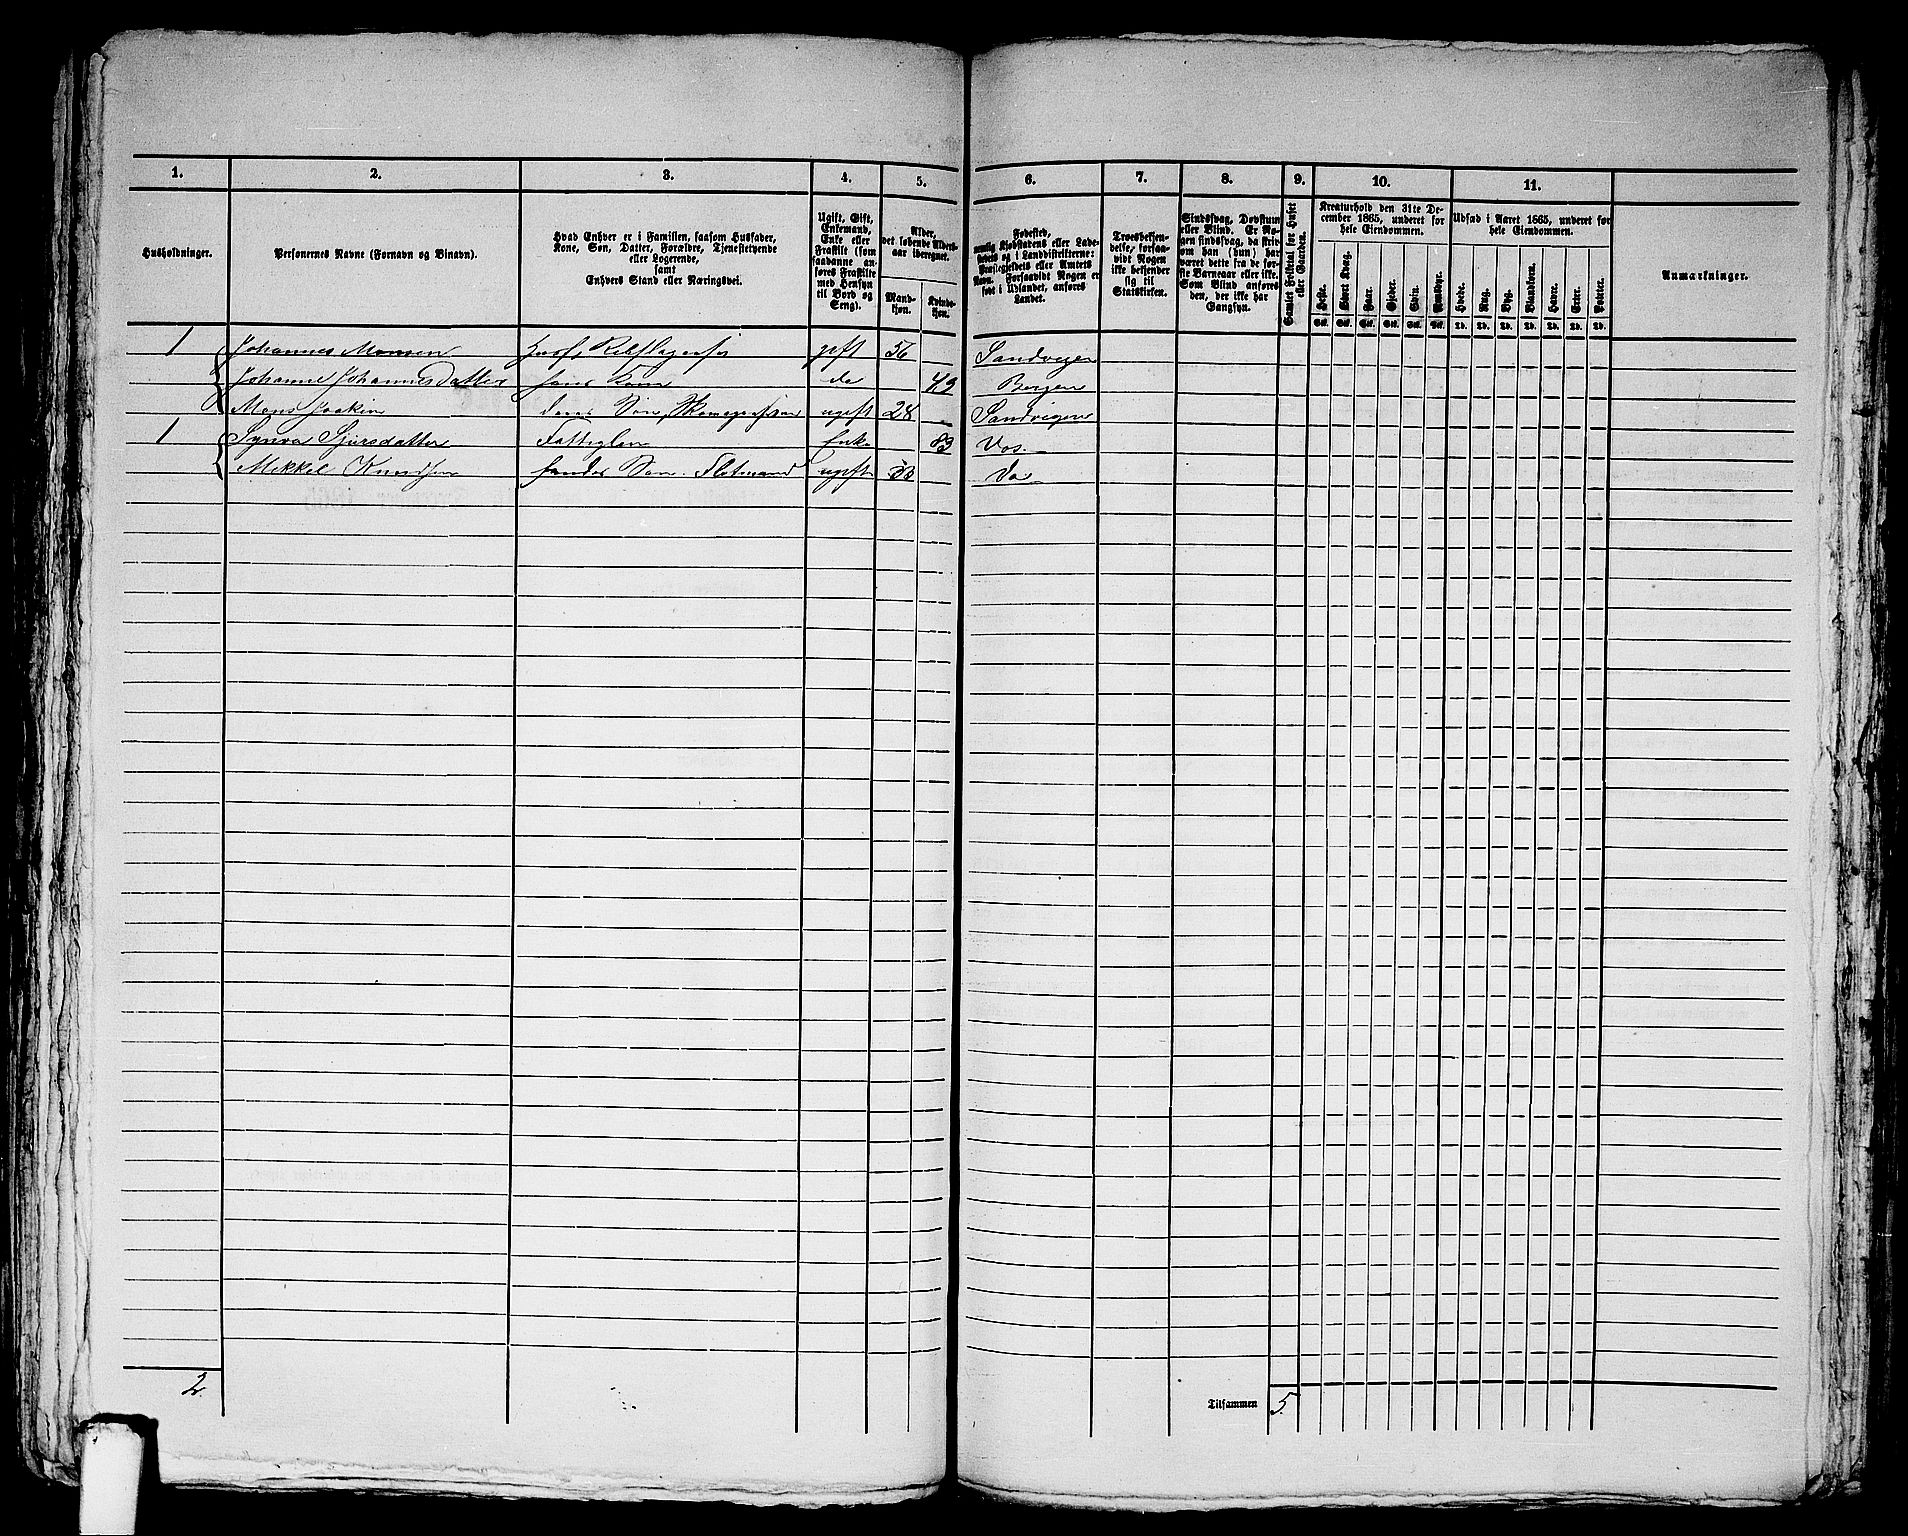 1. 2. 3. 4. 5. 6. 7. 8. 9. 10. 11.
Husholdninger.
Personernes Navne (Fornavn og Binavn).
Hvad Enhver er i Familien, saasom Husfader,
Kone, Søn, Datter, Forældre, Tjenestetyende
eller Logerende,
samt
Enhvers Stand eller Næringsvei.
Ugift, Gift,
Enkemand,
Enke eller
Fraskilt (som
saadanne an-
føres Fraskilte
med Hensyn
til Bord og
Seng).
Alder,
det løbende Alders-
aar iberegnet.
Mand-
kjøn.
Kvinde-
kjøn.
Fødested,
nemlig Kjøbstadens eller Lade-
stedets og i Landdistrikterne:
Præstegjeldets eller Amtets
Navn. Forsaavidt Nogen er
født i Udlandet, anføres
Landet.
Troesbekjen-
delse, forsaa-
vidt Nogen
ikke bekjender
sig til
Statskirken.
Sindssvag, Døvstum
eller Blind. Er No-
gen sindssvag, da skri-
ves om han (hun) har
været dette fra de før-
ste Barneaar eller ikke.
Som Blind anføres
den, der ikke har
Gangsyn.
Samlet Folketal for Huset
eller Gaarden.
Kreaturhold den 31te De-
cember 1865, underet for
hele Eiendommen.
Heste. Stort Kvæg. Faar. Gjeder. Sviin. Rensdyr.
Stk. Stk. Stk. Stk. Stk. Stk.
Udsæd i Aaret 1865, underet for
hele Eiendommen.
Hvede. Rug. Byg. Blandkorn. Havre. Erter. Poteter.
Td. Td. Td. Td. Td. Td. Td.
Anmærkninger.
1 Johannes Monsen Husf. gift 56 Sandvigen
Johanne Johannesdatter hans Kone do 49 Bergen
Mons Joakim deres Søn, ugift 28 Sandvigen
1 Synva Sjursdatter Fattiglem Enke 83 Vos.
Mikkel Knudsen hendes Søn. Flotmand ugift 33 Do
2
Tilsammen 5.